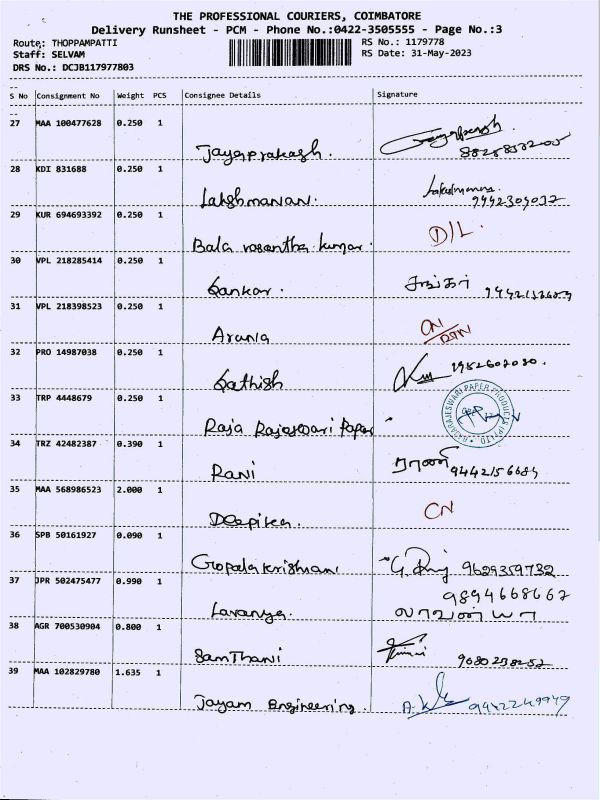 THE PROFESSIONAL COURIERS, COIMBATORE
Delivery Runsheet - PCM - Phone No.:0422-3505555 - Page No.:3
Route: THOPPAMPATTI RS No.: 1179778
Staff: SELVAM RS Date: 31-May-2023
DRS No.: DCJB117977803
S No Consignment No Weight PCS Consignee Details Signature
27 MAA 100477628 0.250 1
Jayaprakash.
28 KDI 831688 0.250 1
Lakshmanan. 9442309032
29 KUR 694693392 0.250 1
Bala vasantha kumar. D/L.
30 VPL 218285414 0.250 1
Sankar. சங்கர்
31 VPL 218398523 0.250 1
Arania CN
32 PRO 14987038 0.250 1
Sathish
33 TRP 4448679 0.250 1
Raja Rajeswari Paper RAJARAJESWARI PAPER PRODUCTS (P) LTD.
34 TRZ 42482387 0.390 1
Rani ராணி
35 MAA 568986523 2.000 1
Deepika. CN
36 SPB 50161927 0.090 1
Gopalakrishnan 9629359732
37 JPR 502475477 0.990 1 9894668667
Lavanya. லாவண்யா
38 AGR 700530904 0.800 1
SamThani 9080238252
39 MAA 102829780 1.635 1
Jayam Engineering. 9442249949